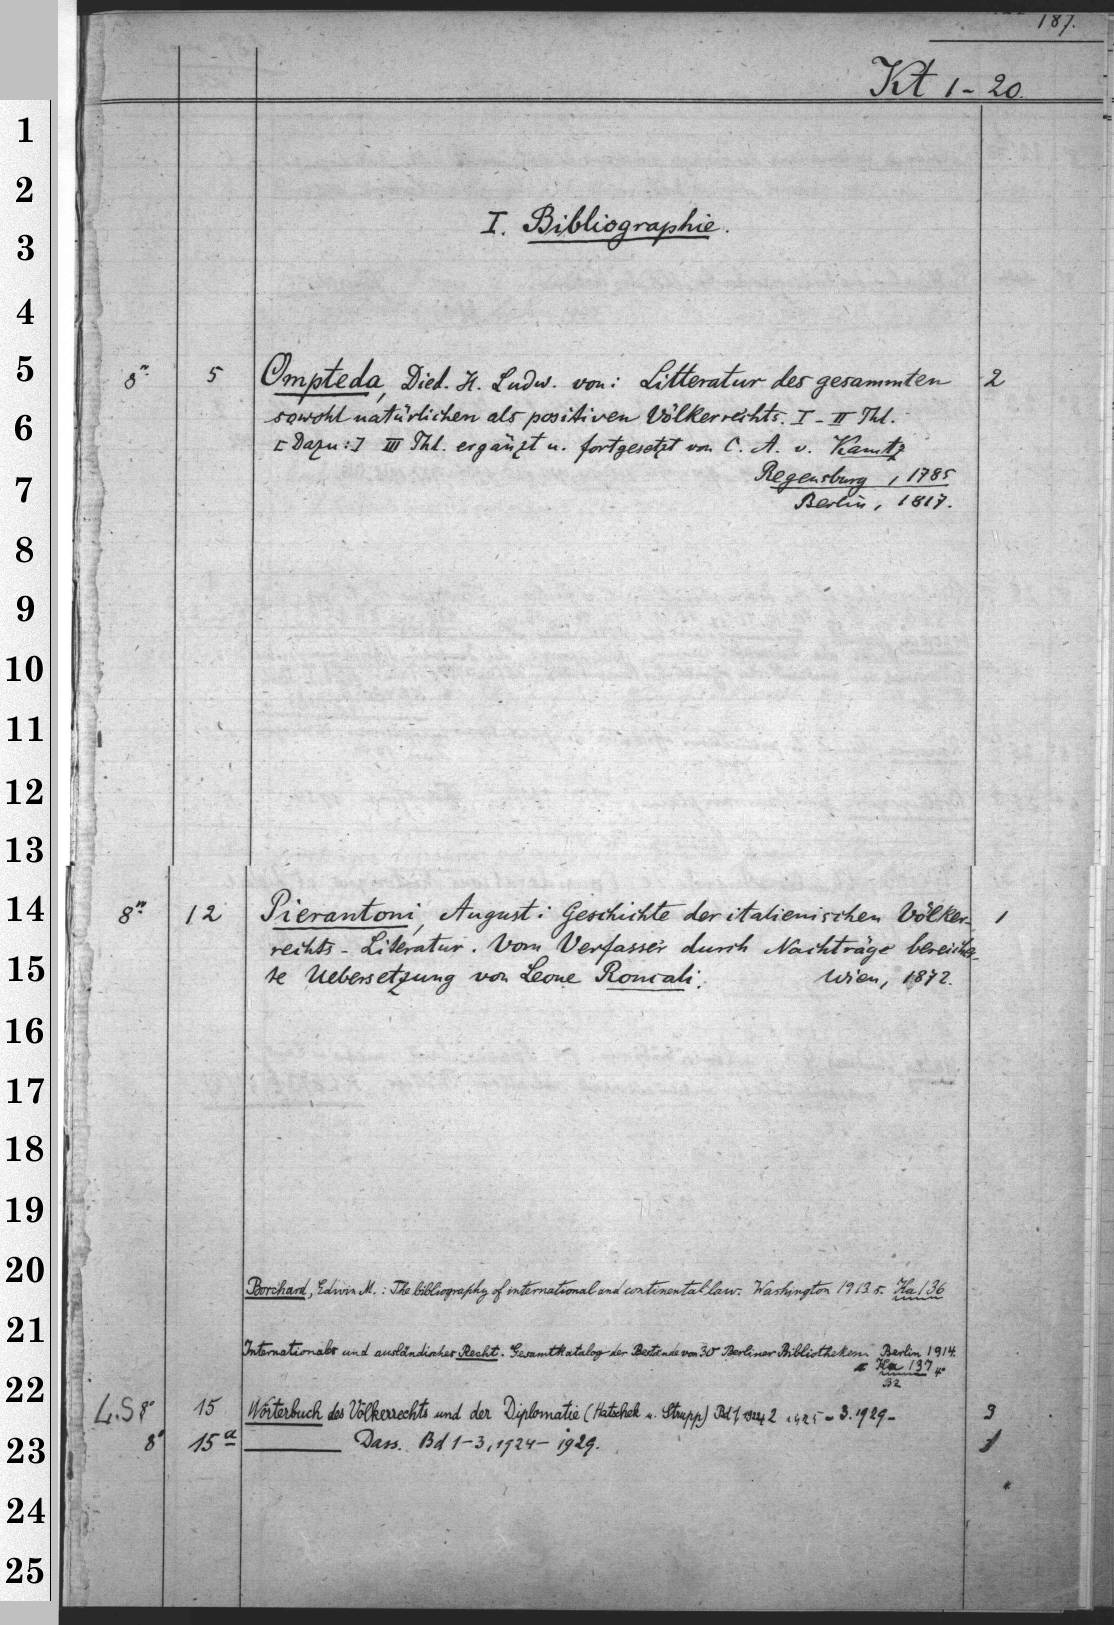 187.
Kt 1-20.
I. Bibliographie.
8° 5 Ompteda, Died. H. Ludw. von: Litteratur des gesammten 2
sowohl natürlichen als positiven Völkerrechts. I-II Thl.
[Dazu:] III Thl. ergänzt u. fortgesetzt von C. A. v. Kamtz
Regensburg, 1785
Berlin, 1817.
8° 12 Pierantoni, August: Geschichte der italienischen Völker- 1
rechts-Literatur. Vom Verfasser durch Nachträge bereicher-
te Uebersetzung von Leone Roncali. Wien, 1872.
Borchard, Edwin M.: The bibliography of international and continental law. Washington 1913. s. Ha 136
Internationales und ausländisches Recht. Gesamtkatalog der Bestände von 30 Berliner Bibliotheken. Berlin 1914.
Ha 137 4°
B2
L.S 8° 15 Wörterbuch des Völkerrechts und der Diplomatie (Hatschek u. Strupp) Bd 1. 1924 2 1925 - 3. 1929- 3
8° 15a Dass. Bd 1-3, 1924-1929.
1
2
3
4
5
6
7
8
9
10
11
12
13
14
15
16
17
18
19
20
21
22
23
24
25